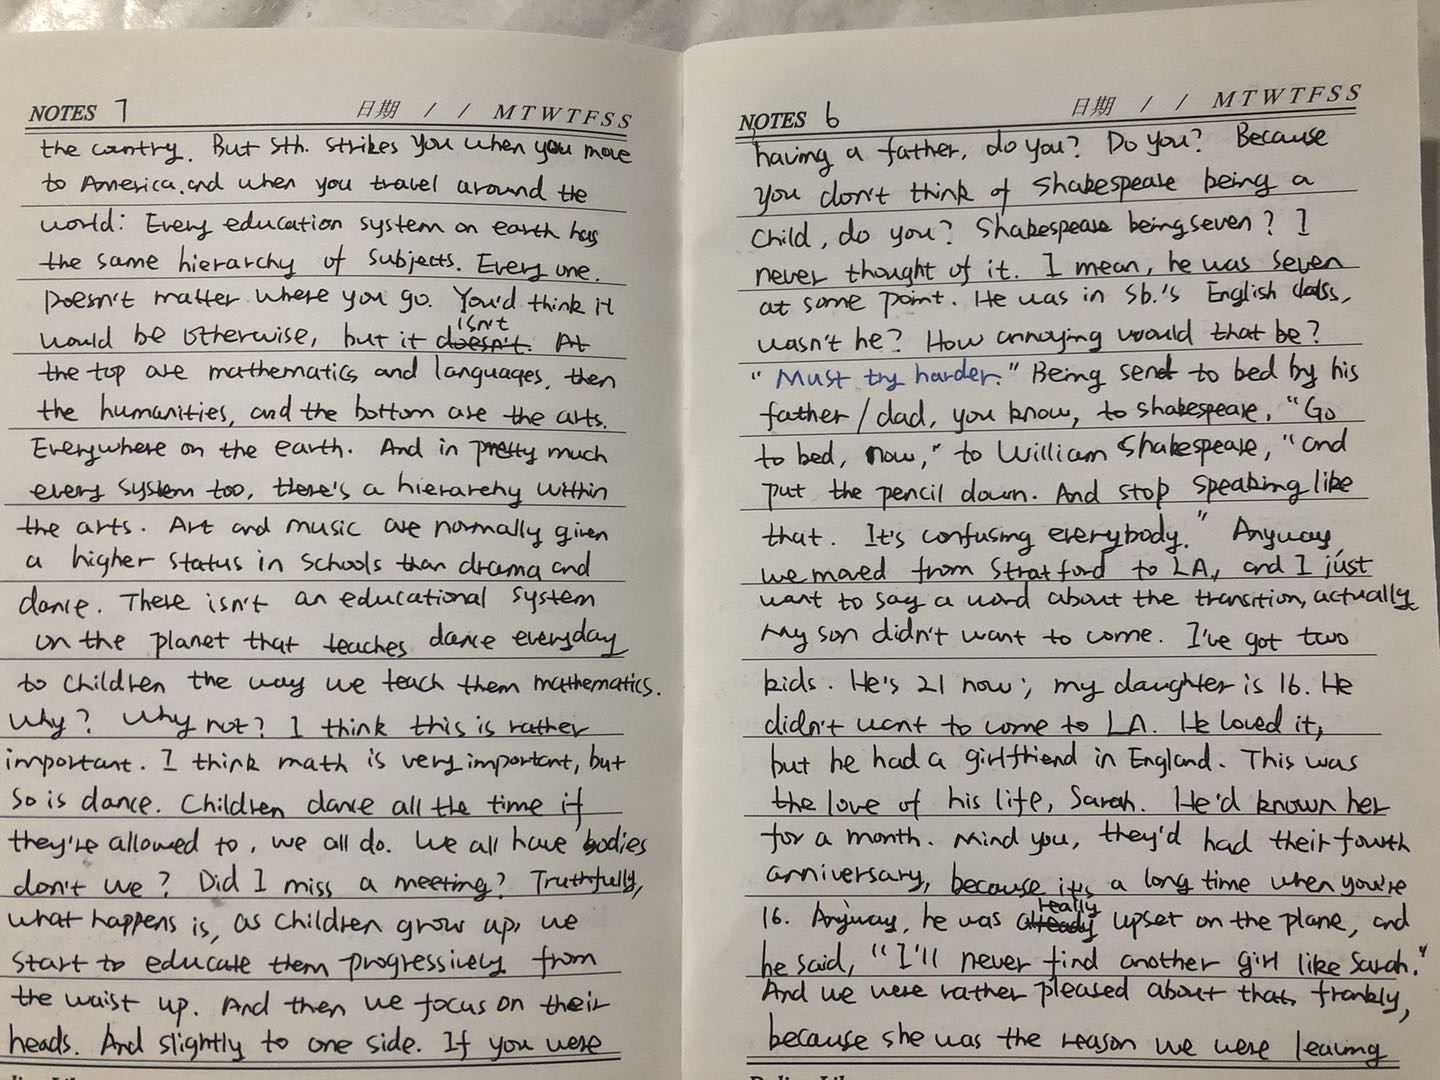 NOTES 7 日期 / / M T W T F S S
the country. But sth. strikes you when you move
to America and when you travel around the
world: Every education system on earth has
the same hierarchy of subjects. Every one.
Doesn't matter where you go. You'd think it
would be otherwise, but it doesn't. isn't At
the top are mathematics and languages, then
the humanities, and the bottom are the arts.
Everywhere on the earth. And in pretty much
every system too, there's a hierarchy within
the arts. Art and music are normally given
a higher status in schools than drama and
dance. There isn't an educational system
on the planet that teaches dance everyday
to children the way we teach them mathematics.
Why? Why not? I think this is rather
important. I think math is very important, but
so is dance. Children dance all the time if
they're allowed to, we all do. We all have bodies
don't we? Did I miss a meeting? Truthfully,
what happens is, as children grow up, we
start to educate them progressively from
the waist up. And then we focus on their
heads. And slightly to one side. If you were
NOTES 6 日期 / / M T W T F S S
having a father, do you? Do you? Because
you don't think of Shakespeare being a
child, do you? Shakespeare being seven? I
never thought of it. I mean, he was seven
at some point. He was in sb.'s English class,
wasn't he? How annoying would that be?
"Must try harder." Being sent to bed by his
father/dad, you know, to Shakespeare, "Go
to bed, now," to William Shakespeare, "and
put the pencil down. And stop speaking like
that. It's confusing everybody." Anyway,
we moved from Stratford to LA, and I just
want to say a word about the transition, actually
My son didn't want to come. I've got two
kids. He's 21 now; my daughter is 16. He
didn't want to come to LA. He loved it,
but he had a girlfriend in England. This was
the love of his life, Sarah. He'd known her
for a month. Mind you, they'd had their fourth
anniversary, because it's a long time when you're
16. Anyway, he was already really upset on the plane, and
he said, "I'll never find another girl like Sarah."
And we were rather pleased about that, frankly,
because she was the reason we were leaving